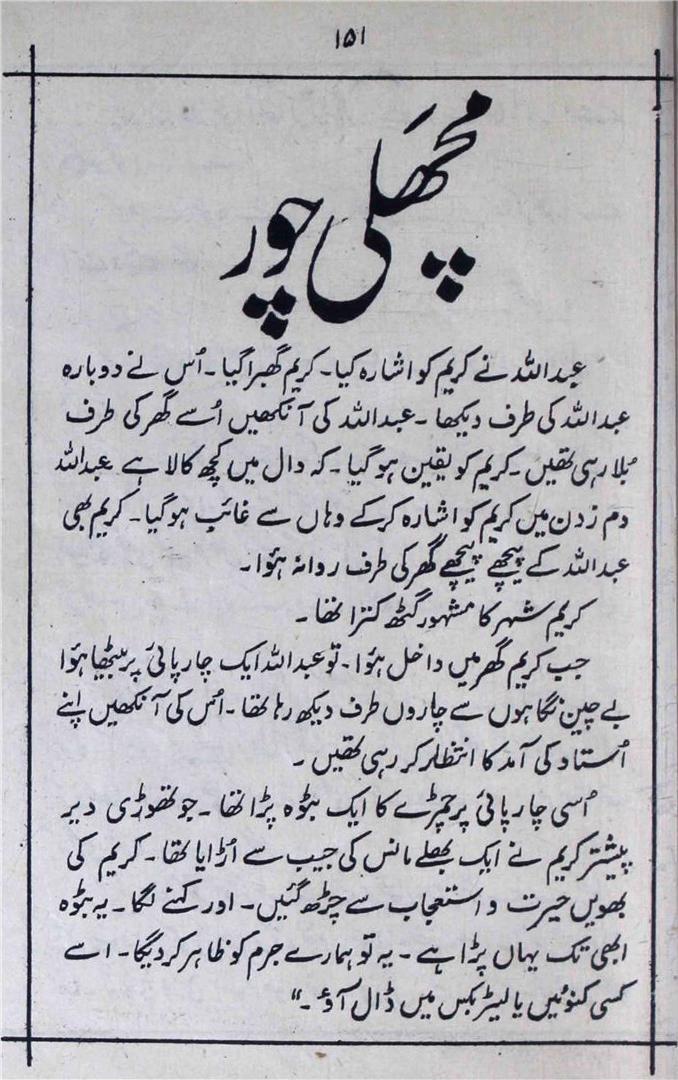 ۱۵۱
مچھلی چور
عبداللہ نے کریم کو اشارہ کیا۔ کریم گھبرا گیا۔ اُس نے دوبارہ
عبداللہ کی طرف دیکھا۔ عبداللہ کی آنکھیں اُسے گھر کی طرف
بُلا رہی تھیں۔ کریم کو یقین ہو گیا۔ کہ دال میں کچھ کالا ہے عبداللہ
دم زدن میں کریم کو اشارہ کرکے وہاں سے غائب ہو گیا۔ کریم بھی
عبداللہ کے پیچھے پیچھے گھر کی طرف روانہ ہؤا۔
کریم شہر کا مشہور گٹھ کترا تھا۔
جب کریم گھر میں داخل ہؤا۔ تو عبداللہ ایک چارپائی پر بیٹھا ہؤا
بے چین نگاہوں سے چاروں طرف دیکھ رہا تھا۔ اُس کی آنکھیں اپنے
اُستاد کی آمد کا انتظار کر رہی تھیں۔
اُسی چارپائی پر چمڑے کا ایک بٹوہ پڑا تھا۔ جو تھوڑی دیر
پیشتر کریم نے ایک بھلے مانس کی جیب سے اُڑایا تھا۔ کریم کی
بھویں حیرت و استعجاب سے چڑھ گئیں۔ اور کہنے لگا۔ یہ بٹوہ
ابھی تک یہاں پڑا ہے۔ یہ تو ہمارے جرم کو ظاہر کر دیگا۔ اسے
کسی کنوئیں یا لیٹر بکس میں ڈال آؤ۔"